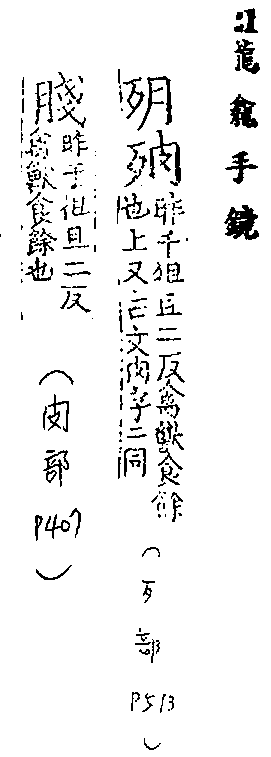 龍龕手鏡
昨干徂旦二反禽獸食餘
也上又亡文肉字二同
(歹部 P513)
䏼昨干徂旦二反
禽獸食餘也
(肉部 P407)